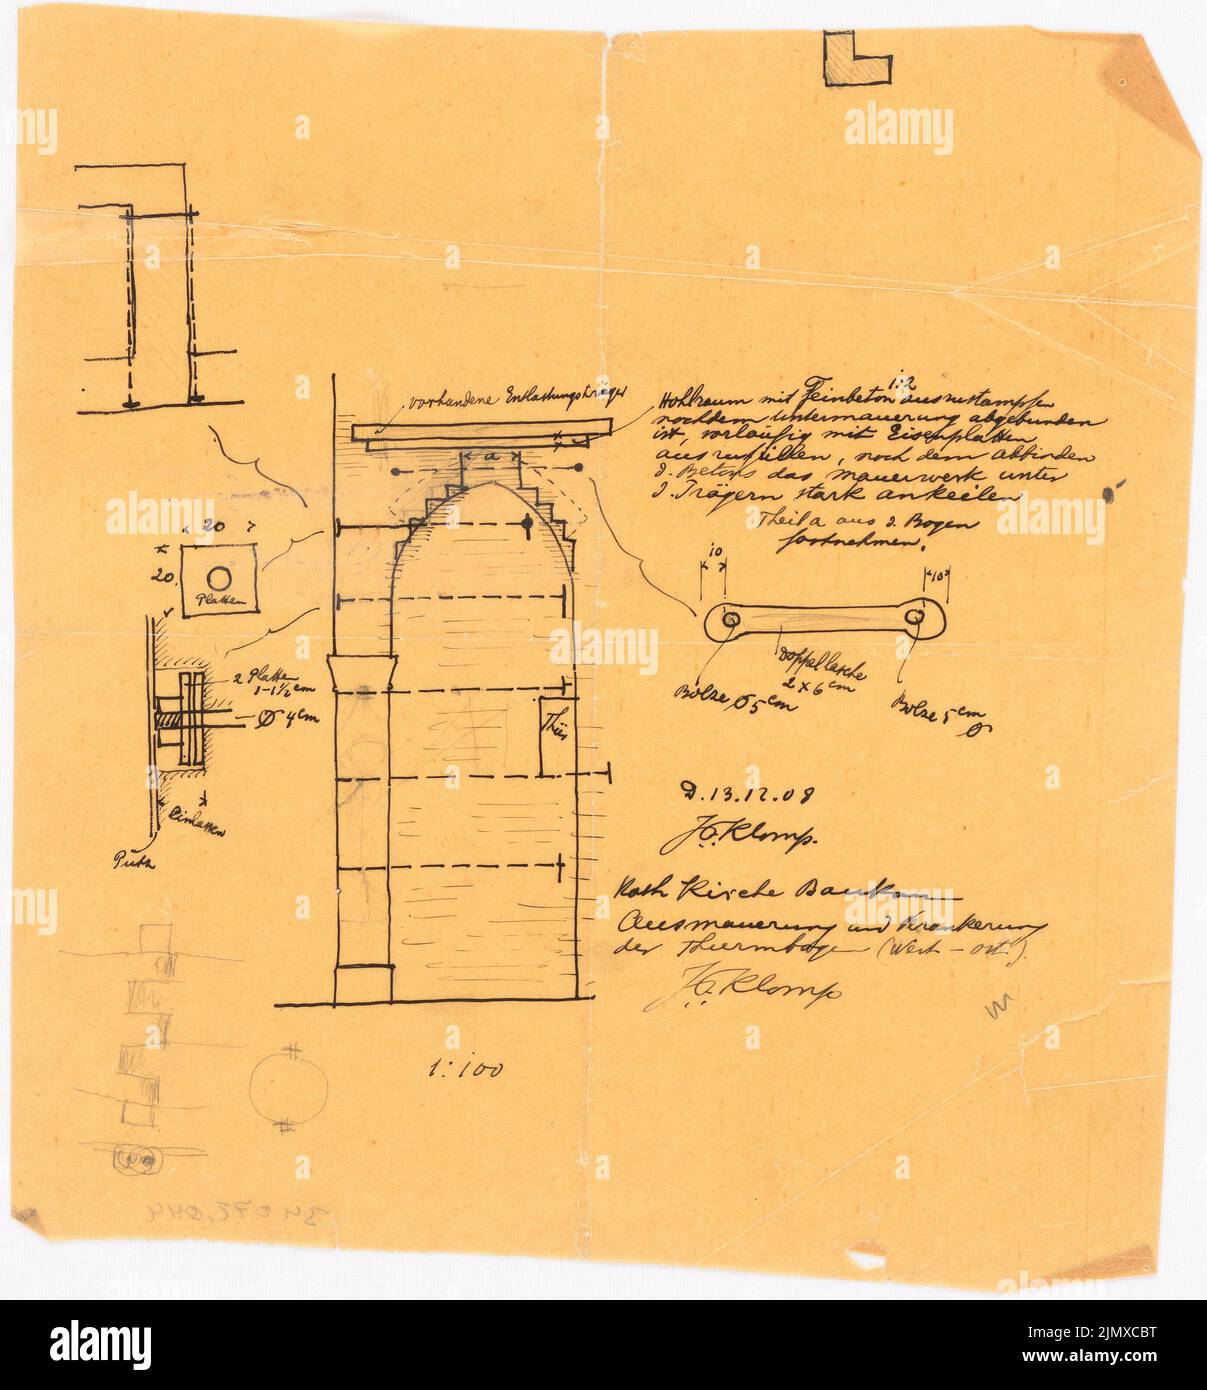 vorhandene Entlastungsträger
1:2
Hohlraum mit Feinbeton ausstampfen
nachdem Untermauerung abgebunden
ist, vorläufig mit Eisenplatten
auszufüllen, nach dem abbinden
d. Betons das Mauerwerk unter
d. Trägern stark ankeilen
Theil a aus d. Bogen
fortnehmen.
a
20
20.
Platten
2 Platten
1-1½ cm
Ø 4 cm
Einlassen
Putz
Thür
10
10
Doppellasche
2 x 6 cm
Bolze Ø 5 cm
Bolze 5 cm
Ø
D. 13.12.08
H. Klomp.
Kath Kirche Baukau
Ausmauerung und Verankerung
der Thurmbogen (West – Ost).
H. Klomp
1:100
34072,044
alamy
Image ID: 2JMXCBT
www.alamy.com